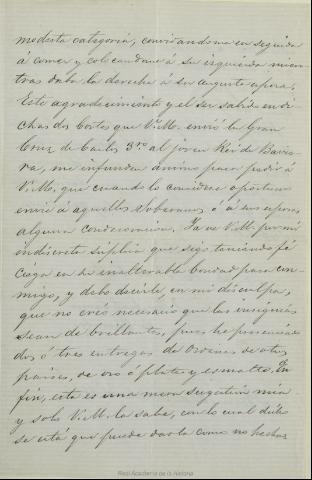 modesta categoria, convidandome en seguida
á comer y colocandome á su izquierda mien-
tras daba la derecha á su augusta esposa.
Este agradecimiento y el ser sabido en di-
chas dos Cortes que V.M. envió la Gran
Cruz de Carlos 3ro al joven Rei de Bavie-
ra, me infunden ánimo para pedir á
V.M. que cuando lo considere oportuno
envie á aquellos Soberanos, ó á sus esposas,
alguna condecoracion. Ya ve V.M. por mi
indiscreta súplica que sigo teniendo fé
ciega en su inalterable bondad para con-
migo, y debo decirle, en mi disculpa,
que no creo necesario que las insignias
sean de brillantes, pues he presenciado
dos ó tres entregas de Ordenes de otros
paises, de oro ó plata y esmalte. En
fin, esta es una mera sugestion mia
y solo V.M. la sabe, con lo cual dicho
se está que puede darla como no hecha
Real Academia de la Historia